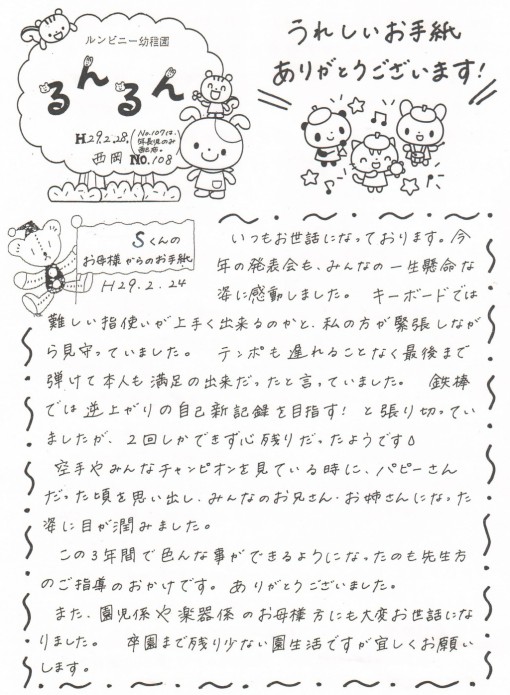 ルンビニー幼稚園
るんるん
H29.2.28.
No.107は、
年長児のみ
配布。
西岡 No.108
うれしいお手紙
ありがとうございます!
Sくんの
お母様からのお手紙
H29.2.24
いつもお世話になっております。今
年の発表会も、みんなの一生懸命な
姿に感動しました。 キーボードでは
難しい指使いが上手く出来るのかと、私の方が緊張しなが
ら見守っていました。 テンポも遅れることなく最後まで
弾けて本人も満足の出来だったと言っていました。 鉄棒
では逆上がりの自己新記録を目指す! と張り切ってい
ましたが、2回しかできず心残りだったようです
空手やみんなチャンピオンを見ている時に、パピーさん
だった頃を思い出し、みんなのお兄さん・お姉さんになった
姿に目が潤みました。
この3年間で色んな事ができるようになったのも先生方
のご指導のおかけです。 ありがとうございました。
また、園児係や楽器係のお母様方にも大変お世話にな
りました。 卒園まで残り少ない園生活ですが宜しくお願い
します。